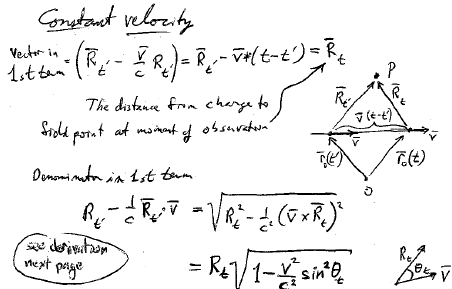 Constant velocity
Vector in 1st term = (R̄_t' - v̄/c R_t') = R̄_t' - v̄*(t-t') = R̄_t
The distance from charge to
field point at moment of observation
P
R̄_t' R̄_t
v̄(t-t')
v̄ v̄
r̄_0(t') r̄_0(t)
O
Denominator in 1st term
R_t' - 1/c R̄_t'·v̄ = √(R_t² - 1/c² (v̄×R̄_t)²)
see derivation
next page
= R_t √(1 - v²/c² sin²θ_t)
R_t θ_t v̄